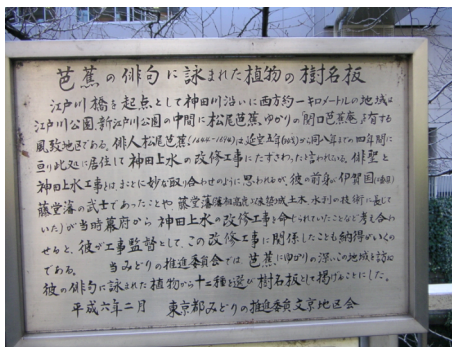 芭蕉の俳句に詠まれた植物の樹名板
江戸川橋を起点として神田川沿いに西方約一キロメートルの地域は
江戸川公園、新江戸川公園の中間に松尾芭蕉ゆかりの関口芭蕉庵を有する
風致地区である。俳人松尾芭蕉(1644-1694)は延宝五年から同八年までの四年間に
亘り此処に居住して神田上水の改修工事にたずさわったと言われている。俳聖と
神田上水工事とはまことに妙な取り合わせのように思われるが、彼の前身が伊賀国
藤堂藩の武士であったことや 藤堂藩(藩祖高虎以来築城、土木、水利の技術に長じて
いた)が当時幕府から神田上水の改修工事を命ぜられていたことなど考え合わ
せると、彼が工事監督として、この改修工事に関係したことも納得がいくの
である。 当みどりの推進委員会では、芭蕉にゆかりの深いこの地域を訪ね
彼の俳句に詠まれた植物から十二種を選び樹名板として掲げることにした。
平成六年二月 東京都みどりの推進委員文京地区会